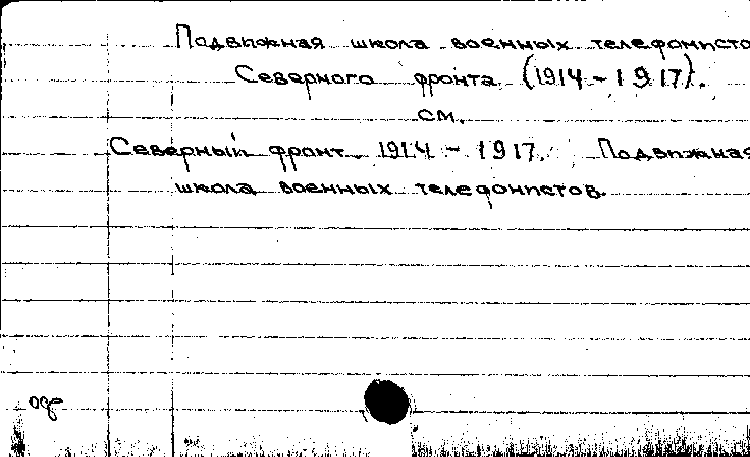 Подвижная школа военных телефонисто
Северного фронта (1914 - 1917).
см.
Северный фронт 1914 - 1917. Подвижная
школа военных телефонистов.